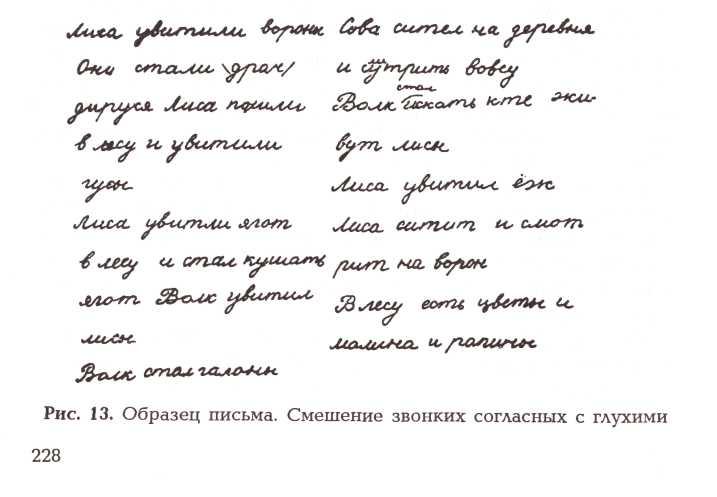 Лиса увитили воронн
Они стали драч
дируся Лиса пошли
в лесу и увитили
гусы
Лиса увитли ягот
в лесу и стал кушать
ягот Волк увитил
лисн
Волк стал галонн
Сова сител на деревня
и трить вовсу
стал
Волк искать кте жи-
вут лисн
Лиса увитил ёж
Лиса ситит и смот
рит на ворон
В лесу есть цветы и
малина и рапины
Рис. 13. Образец письма. Смешение звонких согласных с глухими
228